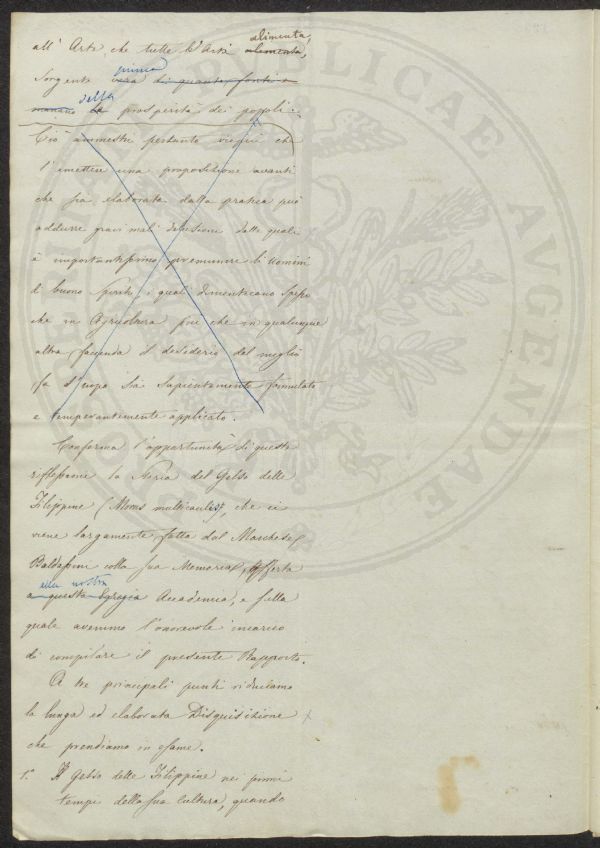 all' Arte, che tutte le Arti alimenta, alimenta,
Sorgente prima vera di quante fonti e
manano della la prosperità dei popoli.
Ciò ammesso pertanto viepiù che
l'emettere una proposizione avanti
che sia elaborata dalla pratica può
addurre gravi mali delusione dalle quali
è importantissimo premunire li Uomini
di buono Spirito, i quali dimenticano spesso
che in Agricoltura più che in qualunque
altra facenda il desiderio del meglio
fa d'uopo sia sapientemente formulato
e temperantemente applicato.
Conferma l'opportunità di queste
riflessioni la Storia del Gelso delle
Filippine (Morus multicaulis), che ci
viene largamente fatta dal Marchese
Baldassini colla sua Memoria, offerta
alla nostra
a questa Egregia Accademia, e sulla
quale avemmo l'onorevole incarico
di compilare il presente Rapporto.
A tre principali punti riduciamo
la lunga ed elaborata Disquisizione
che prendiamo in esame.
1.° Il Gelso delle Filippine nei primi
tempi della sua cultura, quando
PUBLICAE
AUGENDAE